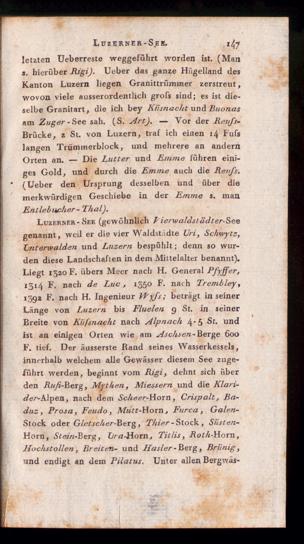 LUZERNER-SEE. 147
letzten Ueberreste weggeführt worden ist. (Man
s. hierüber Rigi). Ueber das ganze Hügelland des
Kanton Luzern liegen Granittrümmer zerstreut,
wovon viele ausserordentlich groſs sind; es ist die-
selbe Granitart, die ich bey Küsnacht und Buonas
am Zuger-See sah. (S. Art). — Vor der Renſs-
Brücke, 2 St. von Luzern, traf ich einen 14 Fuſs
langen Trümmerblock, und mehrere an andern
Orten an. — Die Lutter und Emme führen eini-
ges Gold, und durch die Emme auch die Renſs.
(Ueber den Ursprung desselben und über die
merkwürdigen Geschiebe in der Emme s. man
Entlebucher-Thal).
LUZERNER-SEE (gewöhnlich Vierwaldstädter-See
genannt, weil er die vier Waldstädte Uri, Schwytz,
Unterwalden und Luzern bespühlt; denn so wur-
den diese Landschaften in dem Mittelalter benannt).
Liegt 1320 F. übers Meer nach H. General Pfyffer,
1314 F. nach de Luc, 1350 F. nach Trembley,
1392 F. nach H. Ingenieur Wyſs; beträgt in seiner
Länge von Luzern bis Fluelen 9 St. in seiner
Breite von Küſsnacht nach Alpnach 4-5 St. und
ist an einigen Orten wie am Aschsen-Berge 600
F. tief. Der äusserste Rand seines Wasserkessels,
innerhalb welchem alle Gewässer diesem See zuge-
führt werden, beginnt vom Rigi, dehnt sich über
den Ruſi-Berg, Mythen, Miessern und die Klari-
der-Alpen, nach dem Scheer-Horn, Crispalt, Ba-
duz, Prosa, Feudo, Mutt-Horn, Furca, Galen-
Stock oder Gletscher-Berg, Thier-Stock, Süsten-
Horn, Stein-Berg, Ura-Horn, Titlis, Roth-Horn,
Hochstollen, Breiten- und Hasler-Berg, Brünig,
und endigt an dem Pilatus. Unter allen Bergwäs-